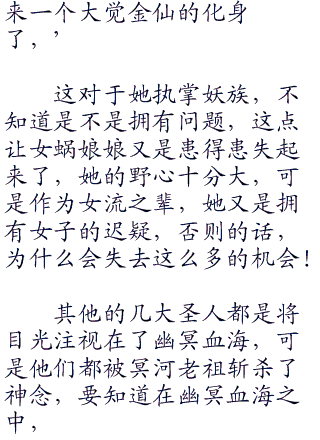 来一个大觉金仙的化身
了，’
这对于她执掌妖族，不
知道是不是拥有问题，这点
让女蜗娘娘又是患得患失起
来了，她的野心十分大，可
是作为女流之辈，她又是拥
有女子的迟疑，否则的话，
为什么会失去这么多的机会！
其他的几大圣人都是将
目光注视在了幽冥血海，可
是他们都被冥河老祖斩杀了
神念，要知道在幽冥血海之
中，